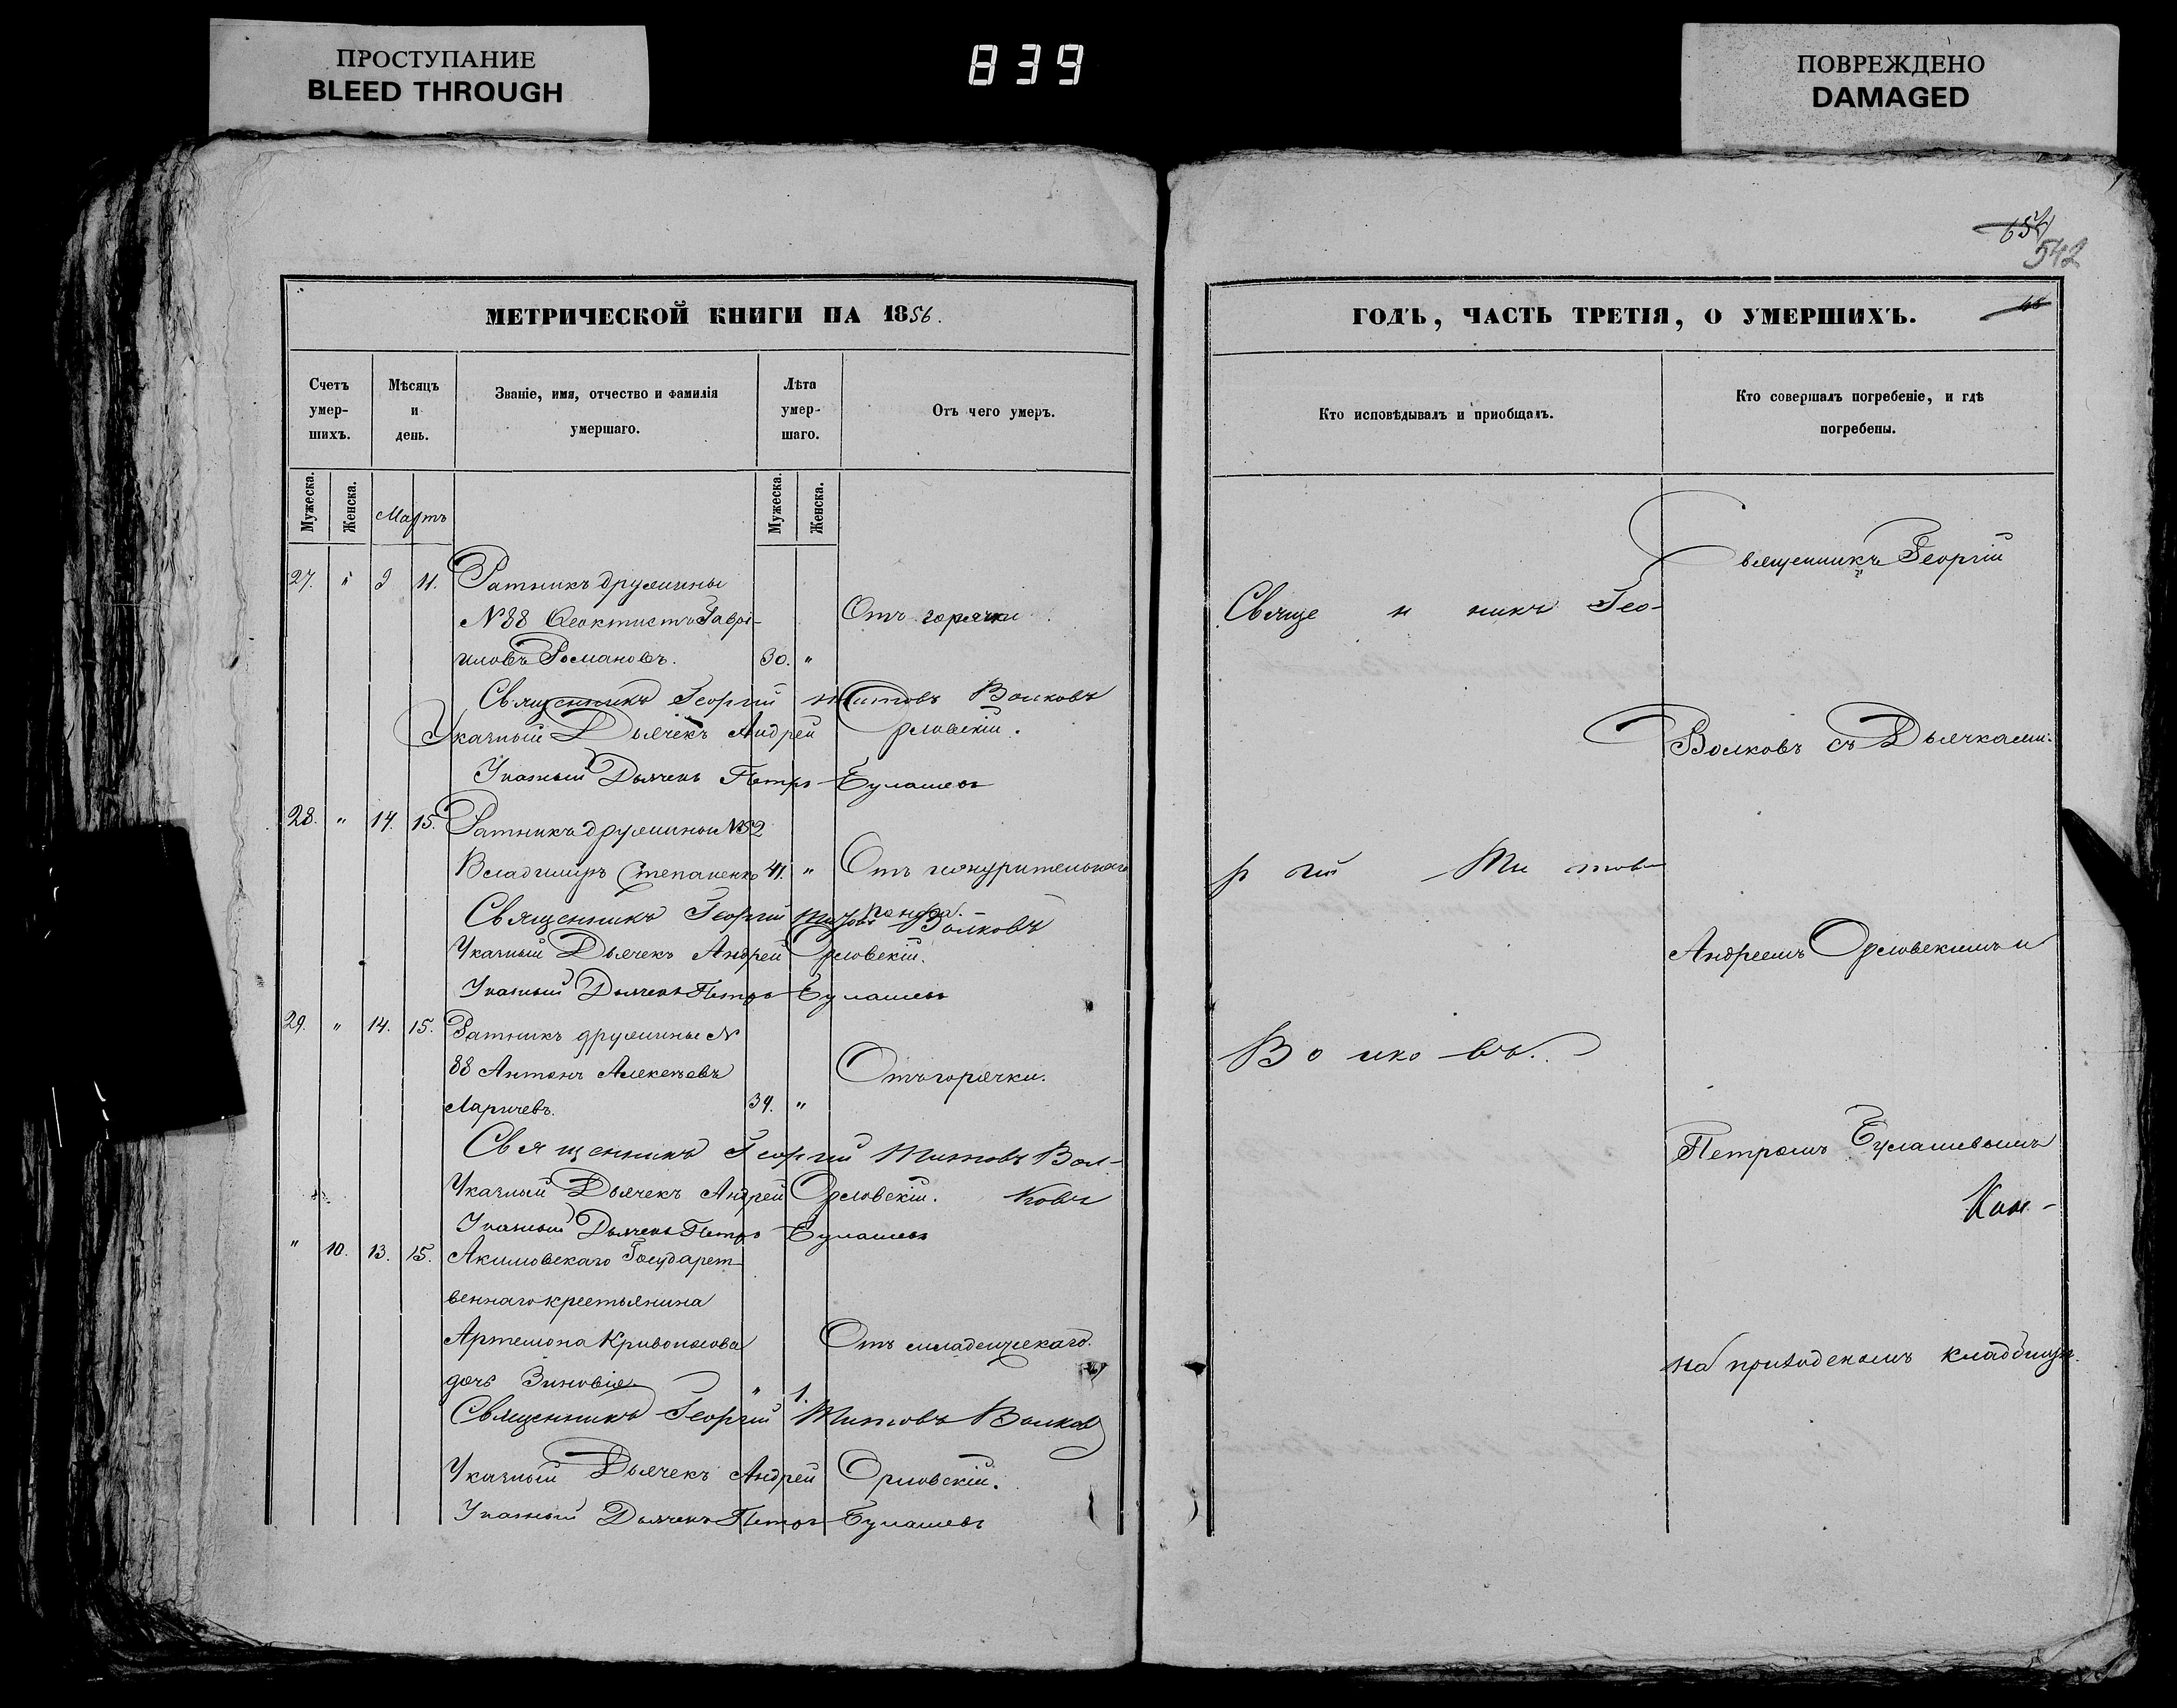 ПРОСТУПАНИЕ
BLEED THROUGH
839
ПОВРЕЖДЕНО
DAMAGED
МЕТРИЧЕСКОЙ КНИГИ НА 1856.
Счетъ умер-шихъ.
Мѣсяцъ и день.
Званіе, имя, отчество и фамилія умершаго.
Лѣта умер-шаго.
Отъ чего умеръ.
Мужеска.
Женска.
Мартъ
Мужеска.
Женска.
27. " 9 11. Ратникъ дружины
№ 88 Ѳеоктистъ Гаврі- Отъ горячки
иловъ Романовъ. 30. "
Священникъ Георгій Титовъ Волковъ
Указный Дьячекъ Андрей Орловскій.
Указный Дьячекъ Петръ Булашевъ
28. " 14. 15. Ратникъ дружины № 52
Владимиръ Степаненко 41. " Отъ изнурительнаго
поноса.
Священникъ Георгій Титовъ Волковъ
Указный Дьячекъ Андрей Орловскій.
Указный Дьячекъ Петръ Булашевъ
29. " 14. 15. Ратникъ дружины №
88 Антонъ Алексѣевъ Отъ горячки.
Ларичевъ. 34. "
Священникъ Георгій Титовъ Вол-
Указный Дьячекъ Андрей Орловскій. ковъ
Указный Дьячекъ Петръ Булашевъ
" 10. 13. 15. Акимовскаго Государст-
веннаго крестьянина
Артемона Кривоносова Отъ младенческаго.
дочь Зиновія " 1.
Священникъ Георгій Титовъ Волковъ
Указный Дьячекъ Андрей Орловскій.
Указный Дьячекъ Петръ Булашевъ
654
542
ГОДЪ, ЧАСТЬ ТРЕТІЯ, О УМЕРШИХЪ.
Кто исповѣдывалъ и пріобщалъ.
Кто совершалъ погребеніе, и гдѣ погребены.
Священникъ Гео-
ргій Титовъ
Волковъ.
Священникъ Георгій
Волковъ съ Дьячками:
Андреемъ Орловскимъ и
Петромъ Булашевымъ
на приходскомъ кладбищѣ.